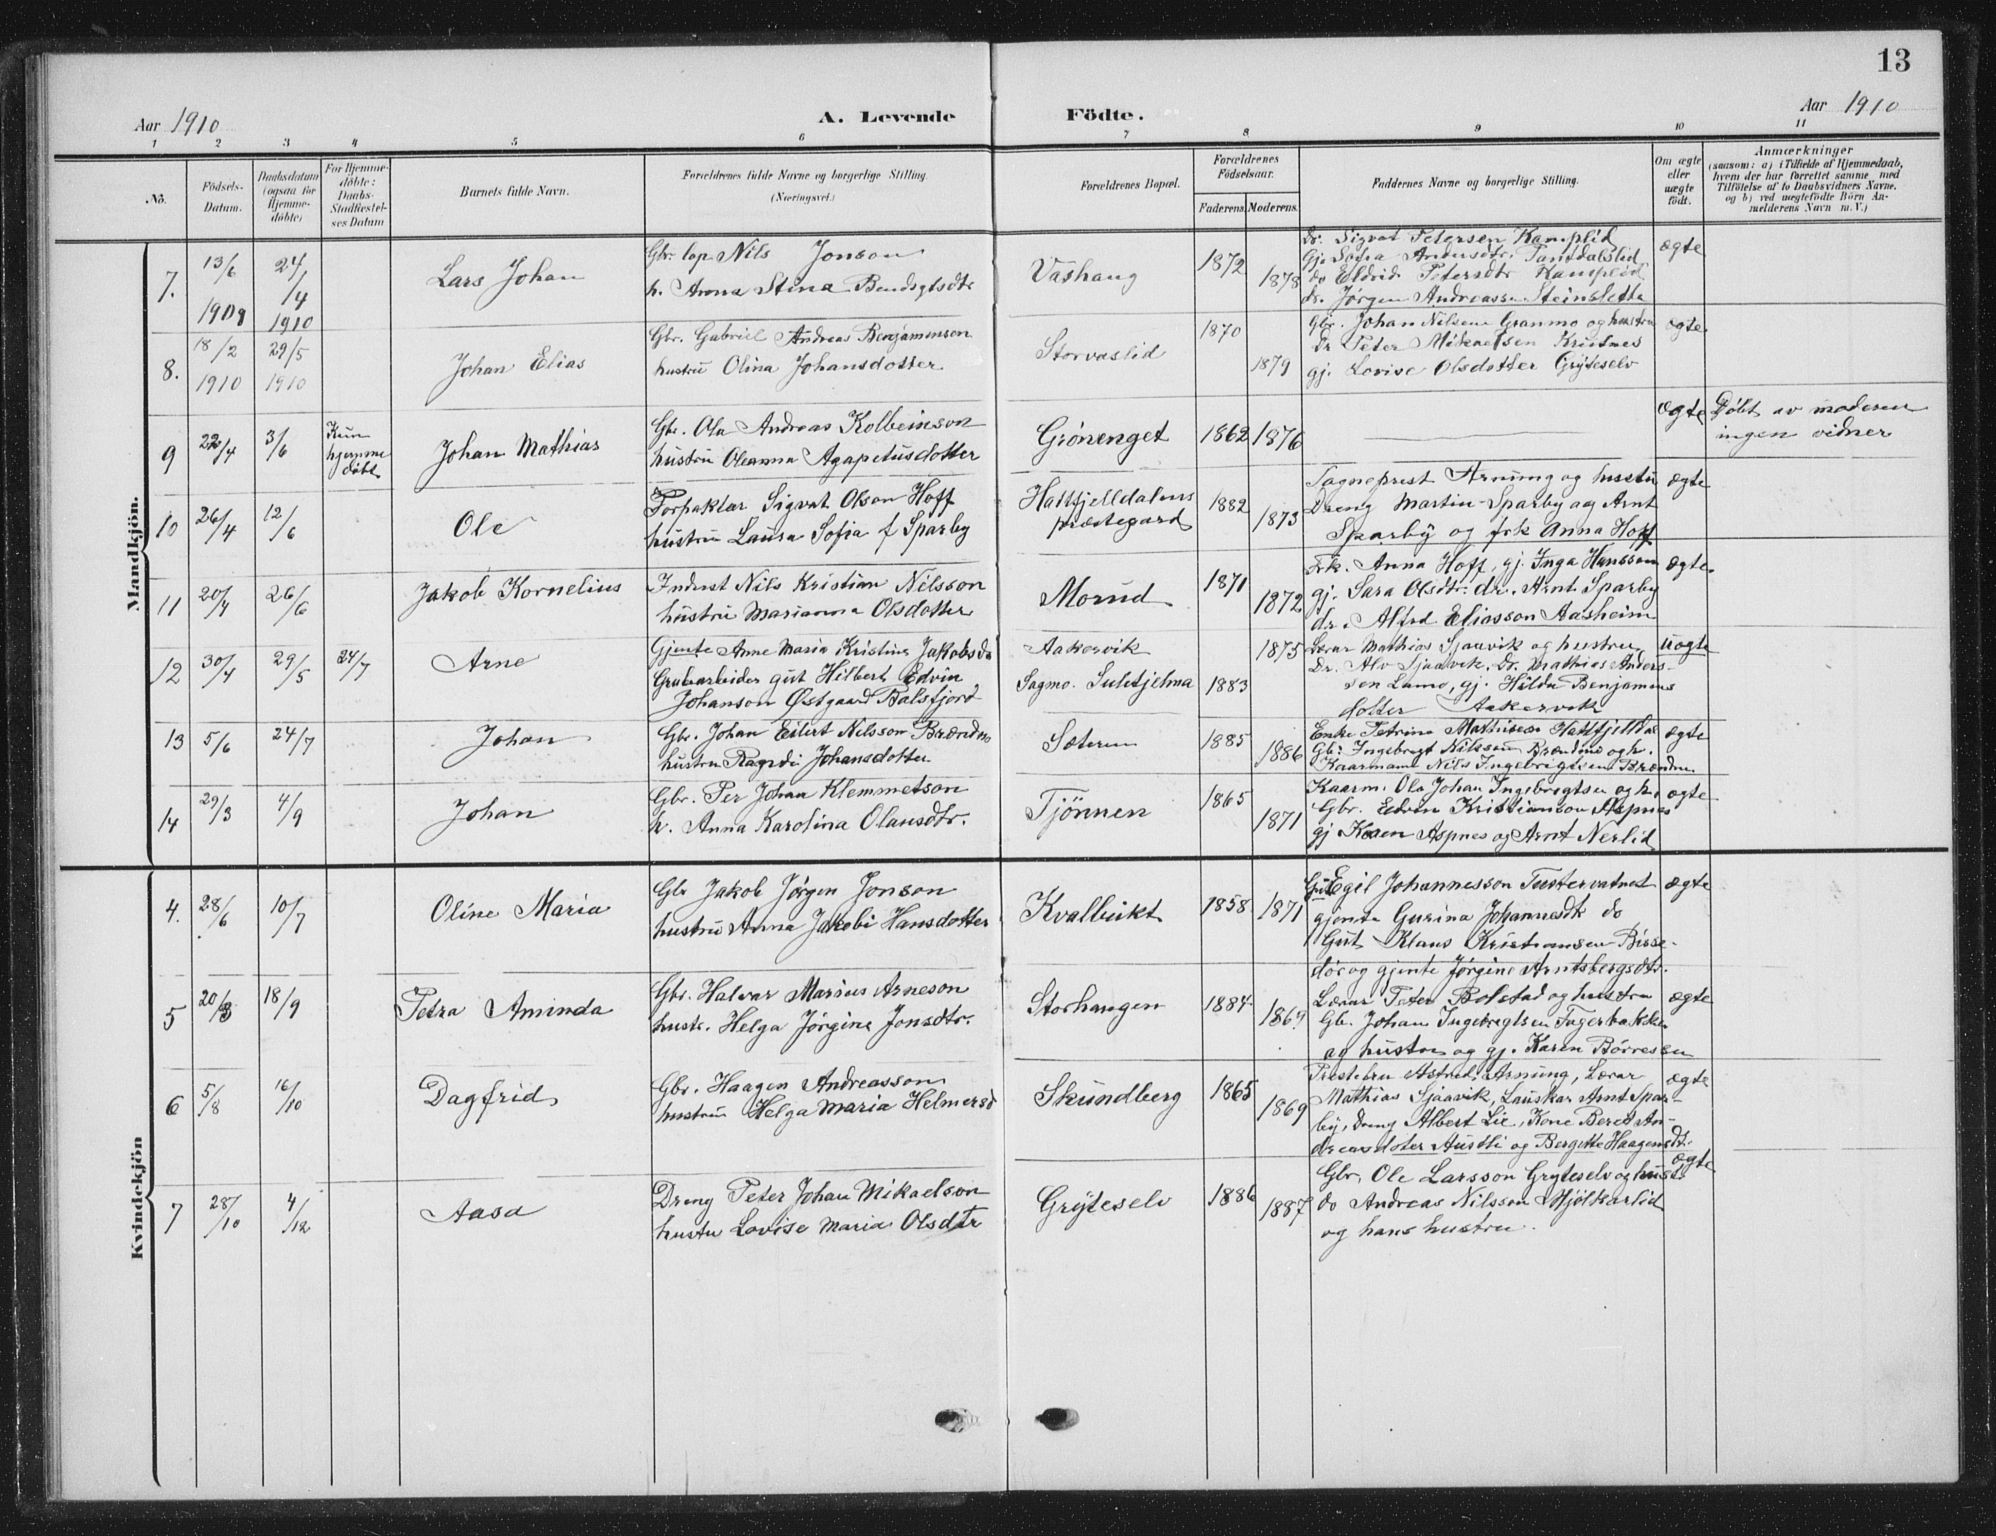 13
Aar 1910
A. Levende
Födte.
Aar 1910
1 2 3 4 5 6 7 8 9 10 11
No.
Födsels-Datum.
Daabsdatum (ogsaa for Hjemmedöbte)
For Hjemmedöbte: Daabs-Stadfæstelses Datum
Barnets fulde Navn.
Forældrenes fulde Navne og borgerlige Stilling.
(Næringsvei.)
Forældrenes Bopæl.
Forældrenes Födselsaar.
Faderens. Moderens.
Faddernes Navne og borgerlige Stilling.
Om ægte eller uægte födt.
Anmærkninger
(saasom: a) i Tilfælde af Hjemmedaab,
hvem der har forrettet samme, med
Tilföielse af to Daabsvidners Navne.
og b) ved uægtefödte Börn An-
melderens Navn m. V.)
Mandkjön.
7. 13/6 1909 24/1 1/4 1910
Lars Johan
Gbr. Nils Jonson
h. Anna Stina Bendigtsdtr
Vashaug
1872 1878
Dr. Sigvat Petersen Kamplid
Gj. Sofia Andersdtr.
do Eldrid Petersdtr Kamplid
dr. Jørgen Andreassen Steinsletta
ægte
8. 18/2 1910 29/5 1910
Johan Elias
Gbr. Gabriel Andreas Benjaminson
hustru Olina Johansdotter
Storvaslid
1870 1879
Gbr. Johan Nilsen Granmo og hustru
Dr Peter Mikaelsen Kristnes
gj. Lovise Olsdotter Grÿteselv
ægte
9 22/4 3/6 Kun hjemme döbt
Johan Mathias
Gbr. Ola Andreas Kolbeinson
hustru Oleanna Agapetusdotter
Grönenget
1862 1876
ægte
Döbt av moderen
ingen vidner
10 26/4 12/6
Ole
Forpaktar Sigvat Olson Hoff
hustru Laura Sofia f Sparby
Hatfjelldalens
præstegard
1882 1873
Sogneprest Arnung og hustru
Dreng Martin Sparby og Arnt
Sparby og frk Anna Hoff
ægte
11 20/4 26/6
Jakob Kornelius
Inderst Nils Kristian Nilsson
hustru Marianna Olsdotter
Morud
1871 1872
Frk. Anna Hoff, gj. Inga Hansson
gj. Sara Olsdtr. dr. Arnt Sparby
dr. Alfred Eliasson Aasheim
ægte
12 30/4 29/5 24/7
Arne
Gjente Anne Maria Kristine Jakobsdr
Grubarbeider gut Hilbert Edvin
Johanson Østgaard Balsfjord
Aakervik
Sagmo. Sulitjelma
1875
1883
Lærar Mathias Sjaavik og hustru
Dr. Alv Sjaavik, Dr. Mathias Anders-
son Lamo, gj. Hilda Benjamins
dotter Aakervik
uægte
13 5/6 24/7
Johan
Gbr. Johan Eilert Nilsson Brændmo
hustru Ragndi Johansdotter
Sæteren
1885 1886
Enke Petrine Mathisen Hatfjelldal
Gbr. Ingebrigt Nilsson Brændmo og h.
Kaarmann Nils Ingebrigtsen Brændmo
ægte
14 29/3 4/9
Johan
Gbr. Per Johan Klemmetson
h. Anna Karolina Olausdtr.
Tjönnen
1865 1871
Kaarm. Ola Johan Ingebrigtsen og h.
Gbr. Edvin Kristianson Aspnes
gj Karen Aspnes og Arnt Nerlid
ægte
Kvindekjön
4. 28/6 10/7
Oline Maria
Gbr Jakob Jörgen Jonson
hustru Anna Jakobi Hansdotter
Kvalbukt
1858 1871
Gut Egil Johannesson Tustervatnet
gjente Gurina Johannesdtr do
Gut Klaus Kristiansen Bisse-
dör og gjente Jørgine Arntsbergsdtr.
ægte
5 20/8 18/9
Petra Aminda
Gbr. Halvar Marius Arneson
hustr. Helga Jörgine Jonsdtr.
Storhaugen
1884 1869
Lærar Peter Bolstad og hustru
Gb. Johan Ingebrigtsen Fagerbakke
og hustru og gj. Karen Börresen
ægte
6 5/8 16/10
Dagfrid
Gbr. Haagen Andreasson
hustru Helga Maria Helmersd
Skundberg
1865 1869
Prestefru Astrid Arnung, Lærar
Mathias Sjaavik, Arnt Spar-
by, dreng Albert Lie, Kone Beret An-
dreasdoter Austli og Bergitte Haagensdt.
ægte
7 28/10 4/12
Aasa
Dreng Peter Johan Mikaelson
hustu Lovise Maria Olsdtr
Grÿteselv
1886 1887
Gbr. Ole Larsson Gryteselv og hustr
do Andreas Nilsson Mjölkarlid
og hans hustru.
ægte